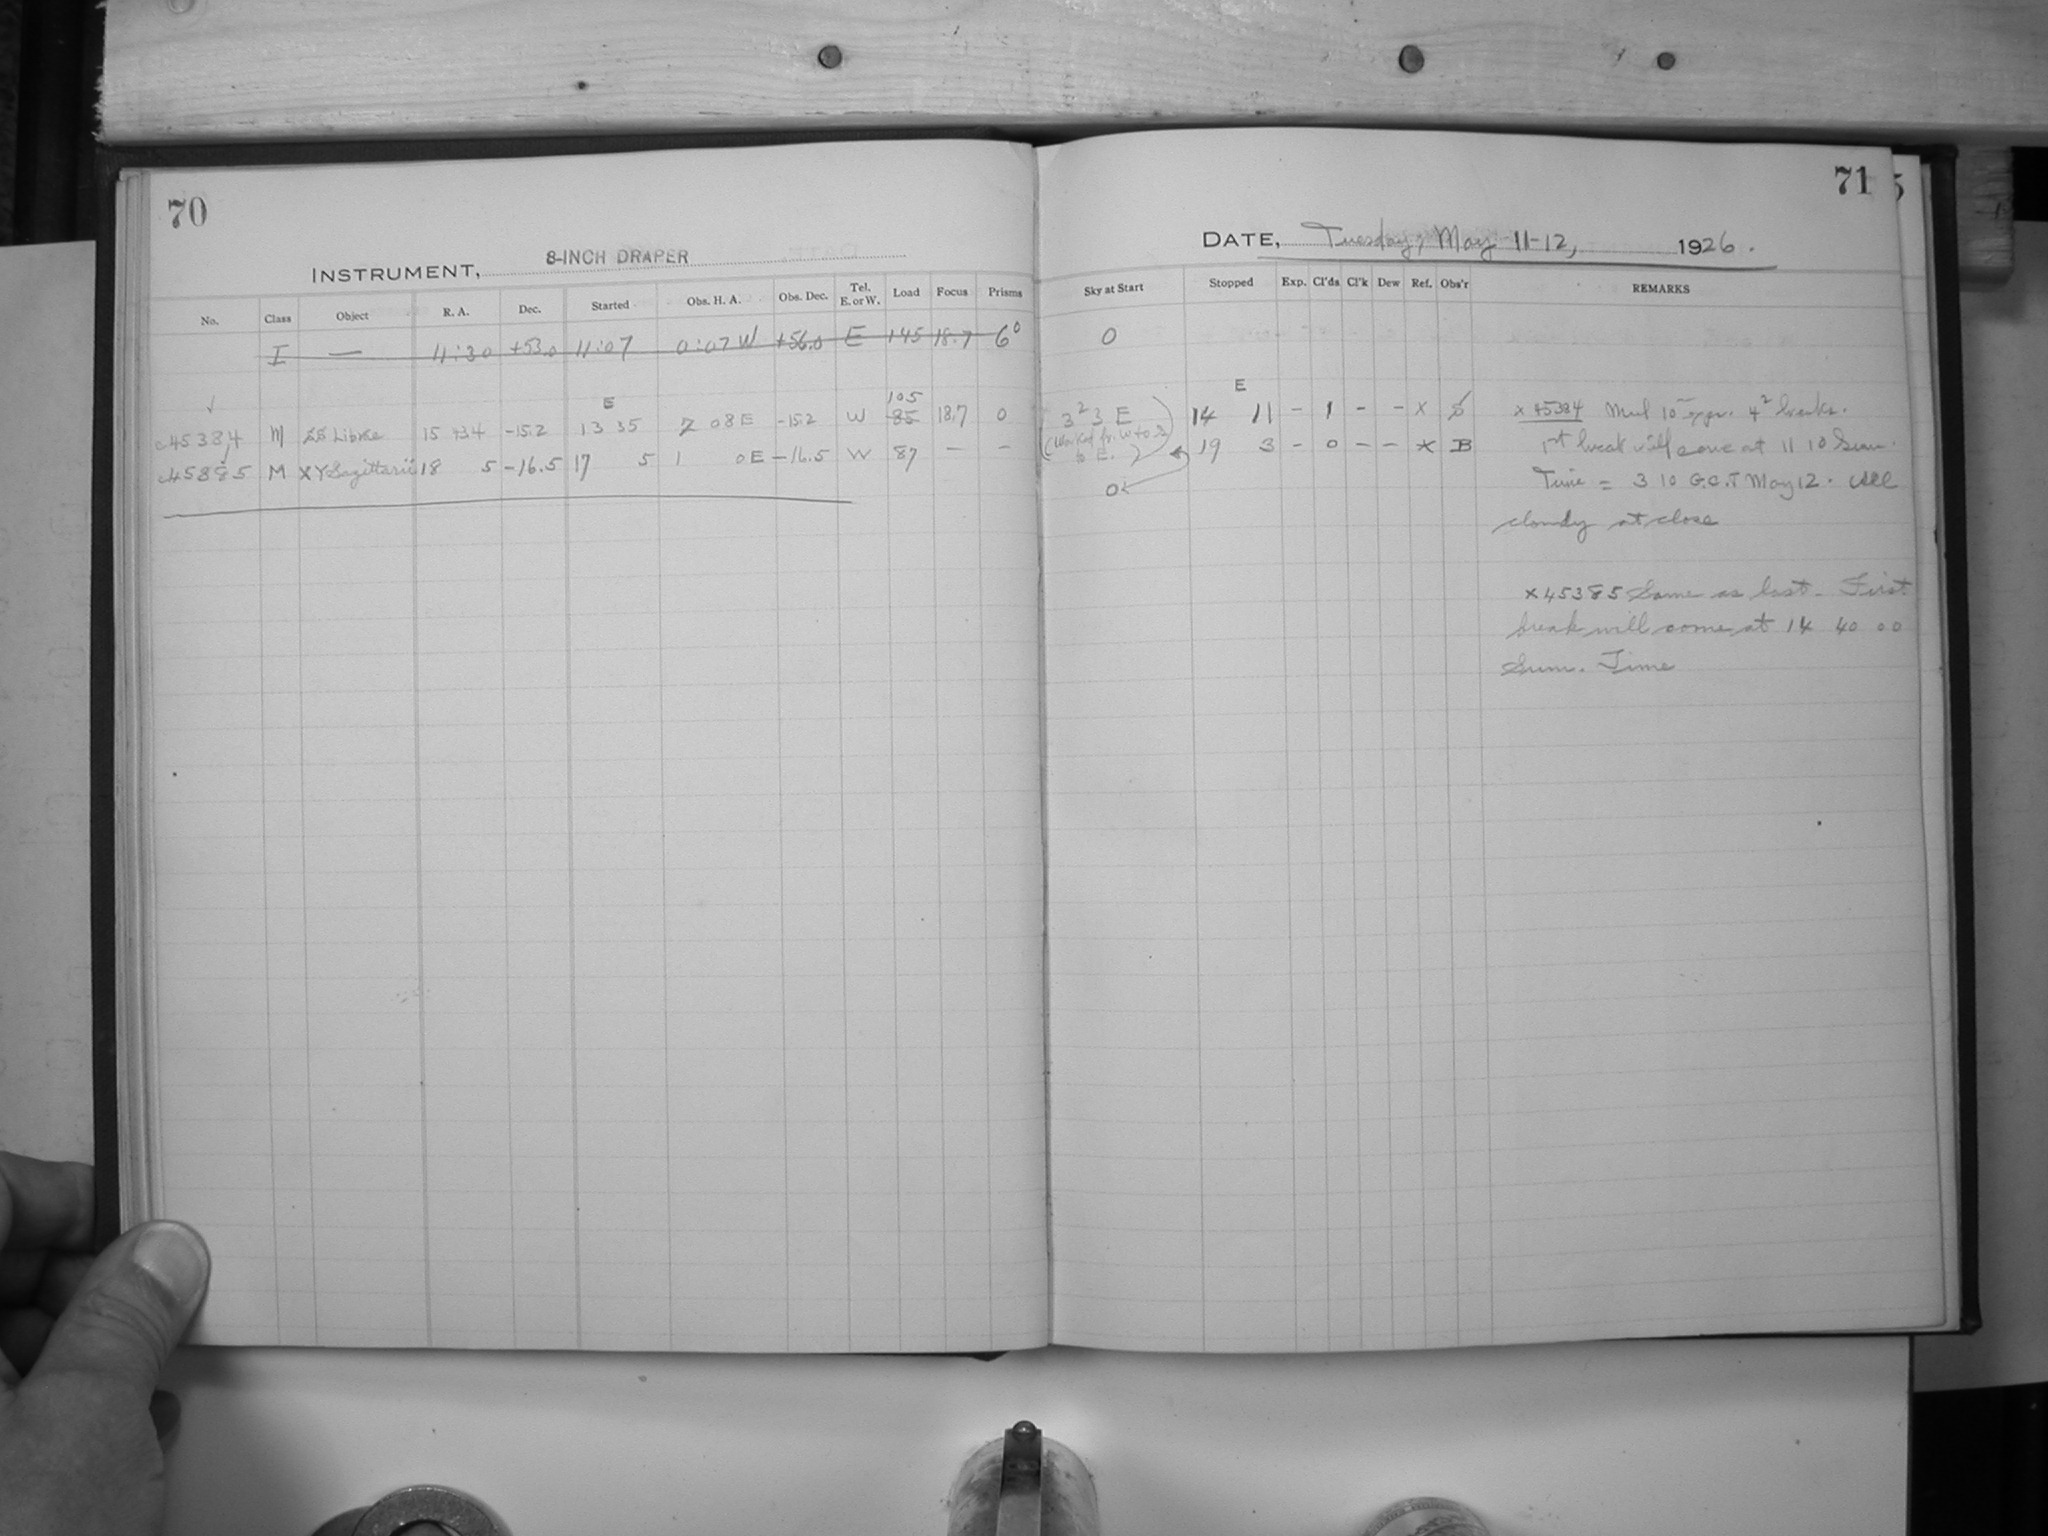 70
INSTRUMENT, 8-INCH DRAPER
No. Class Object R. A. Dec. Started Obs. H. A. Obs. Dec. Tel. E. or W. Load Focus Prisms
I — 11:30 +53.0 11:07 0:07 W +56.0 E 145 18.7 6°
E 105
45384 M Librae 15 34 -15.2 13 35 2 08 E -15.2 W 85 18.7 0
45385 M XY Sagittarii 18 5 -16.5 17 5 1 0 E -16.5 W 87 — —
71
DATE, Tuesday, May 11-12, 1926.
Sky at Start Stopped Exp. Cl'ds Cl'k Dew Ref. Obs'r REMARKS
0
E
3 2 3 E 14 11 - 1 - - x S x 45384 Mul 10 expr. 4 breaks.
to E. 19 3 - 0 - - x B 1st break will come at 11 10 Sum.
0 Time = 3 10 G.C.T May 12.
cloudy at close
x 45385 Same as last. First
break will come at 14 40 00
Sum. Time